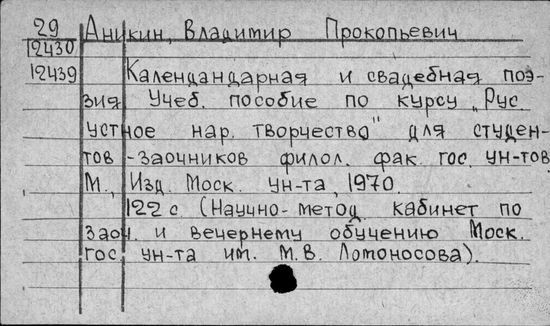 29 Аникин, Владимир Прокопьевич
12430
12439 Календандарная и свадебная поэ-
зия. Учеб. пособие по курсу „Рус.
устное нар. творчество" для студен-
тов-заочников филол. фак. гос. ун-тов.
М., Изд. Моск. ун-та, 1970.
122 с. (Научно-метод. кабинет по
заоч. и вечернему обучению Моск.
гос. ун-та им. М.В. Ломоносова).